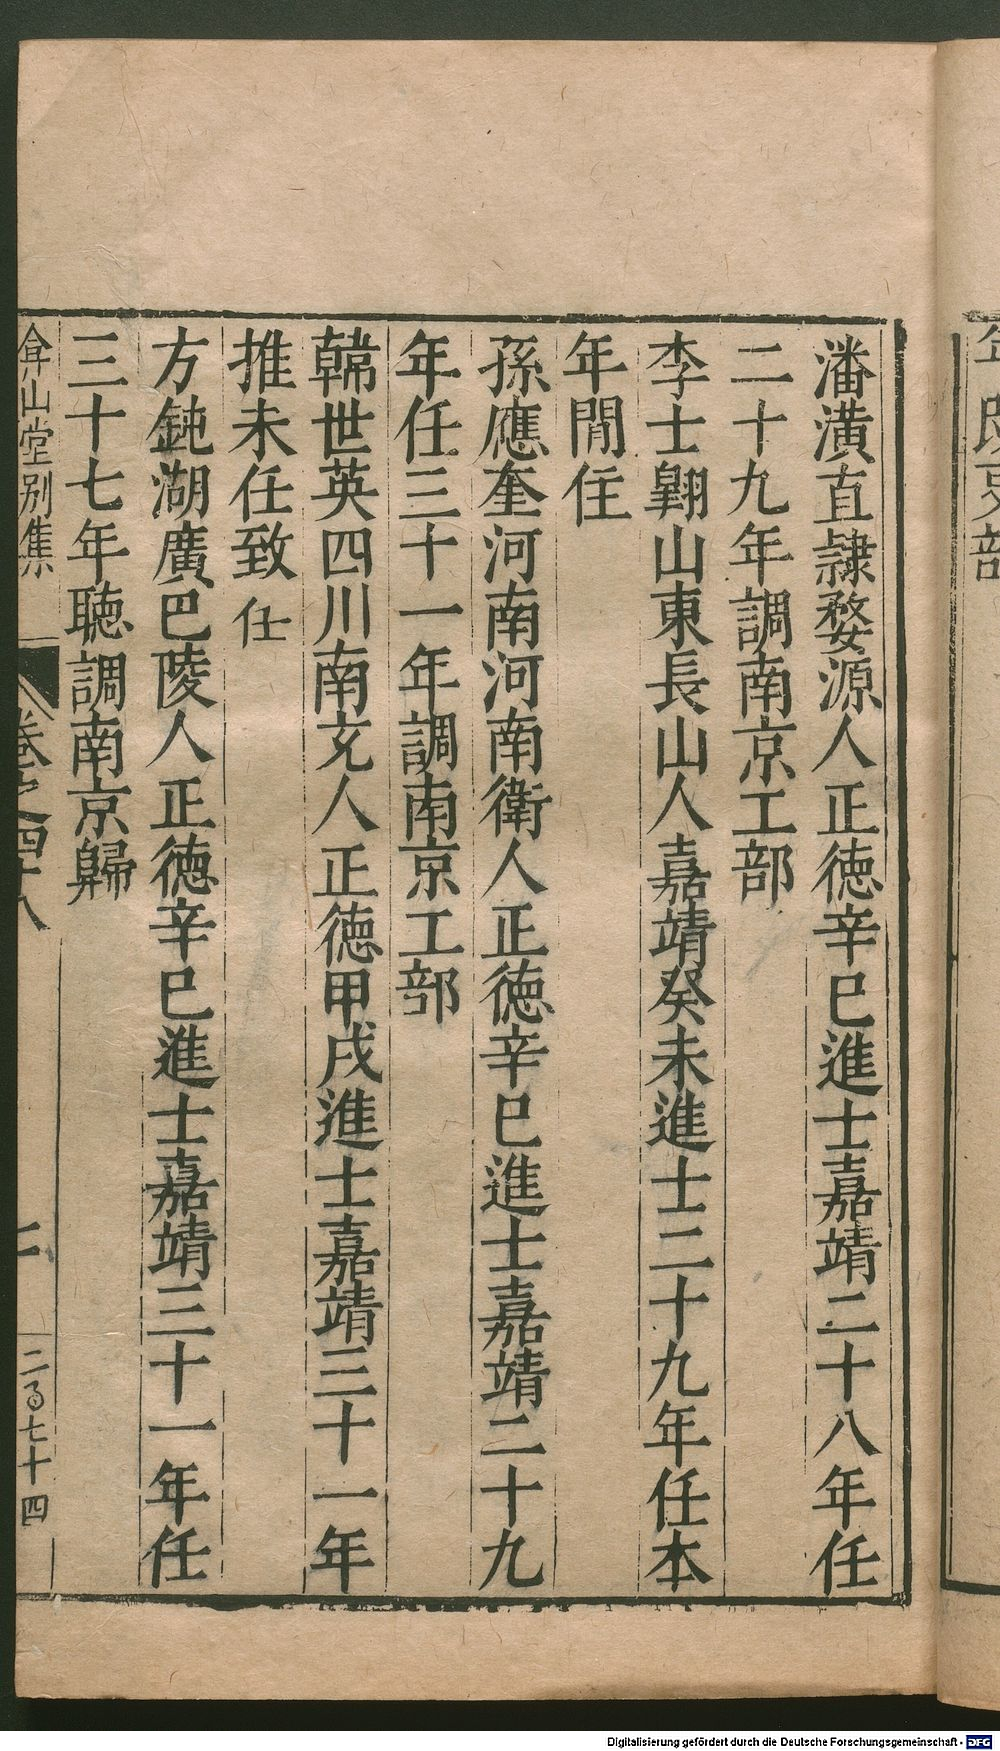 潘潢直隷婺源人正徳辛巳進士嘉靖二十八年任
二十九年調南京工部
李士翺山東長山人嘉靖癸未進士二十九年任本
年閒住
孫應奎河南河南衛人正徳辛巳進士嘉靖二十九
年任三十一年調南京工部
韓世英四川南充人正徳甲戌進士嘉靖三十一年
推未任致任
方鈍湖廣巴陵人正徳辛巳進士嘉靖三十一年任
三十七年聴調南京歸
弇山堂别集 卷之四十八 二 二百七十四
Digitalisierung gefördert durch die Deutsche Forschungsgemeinschaft - DFG